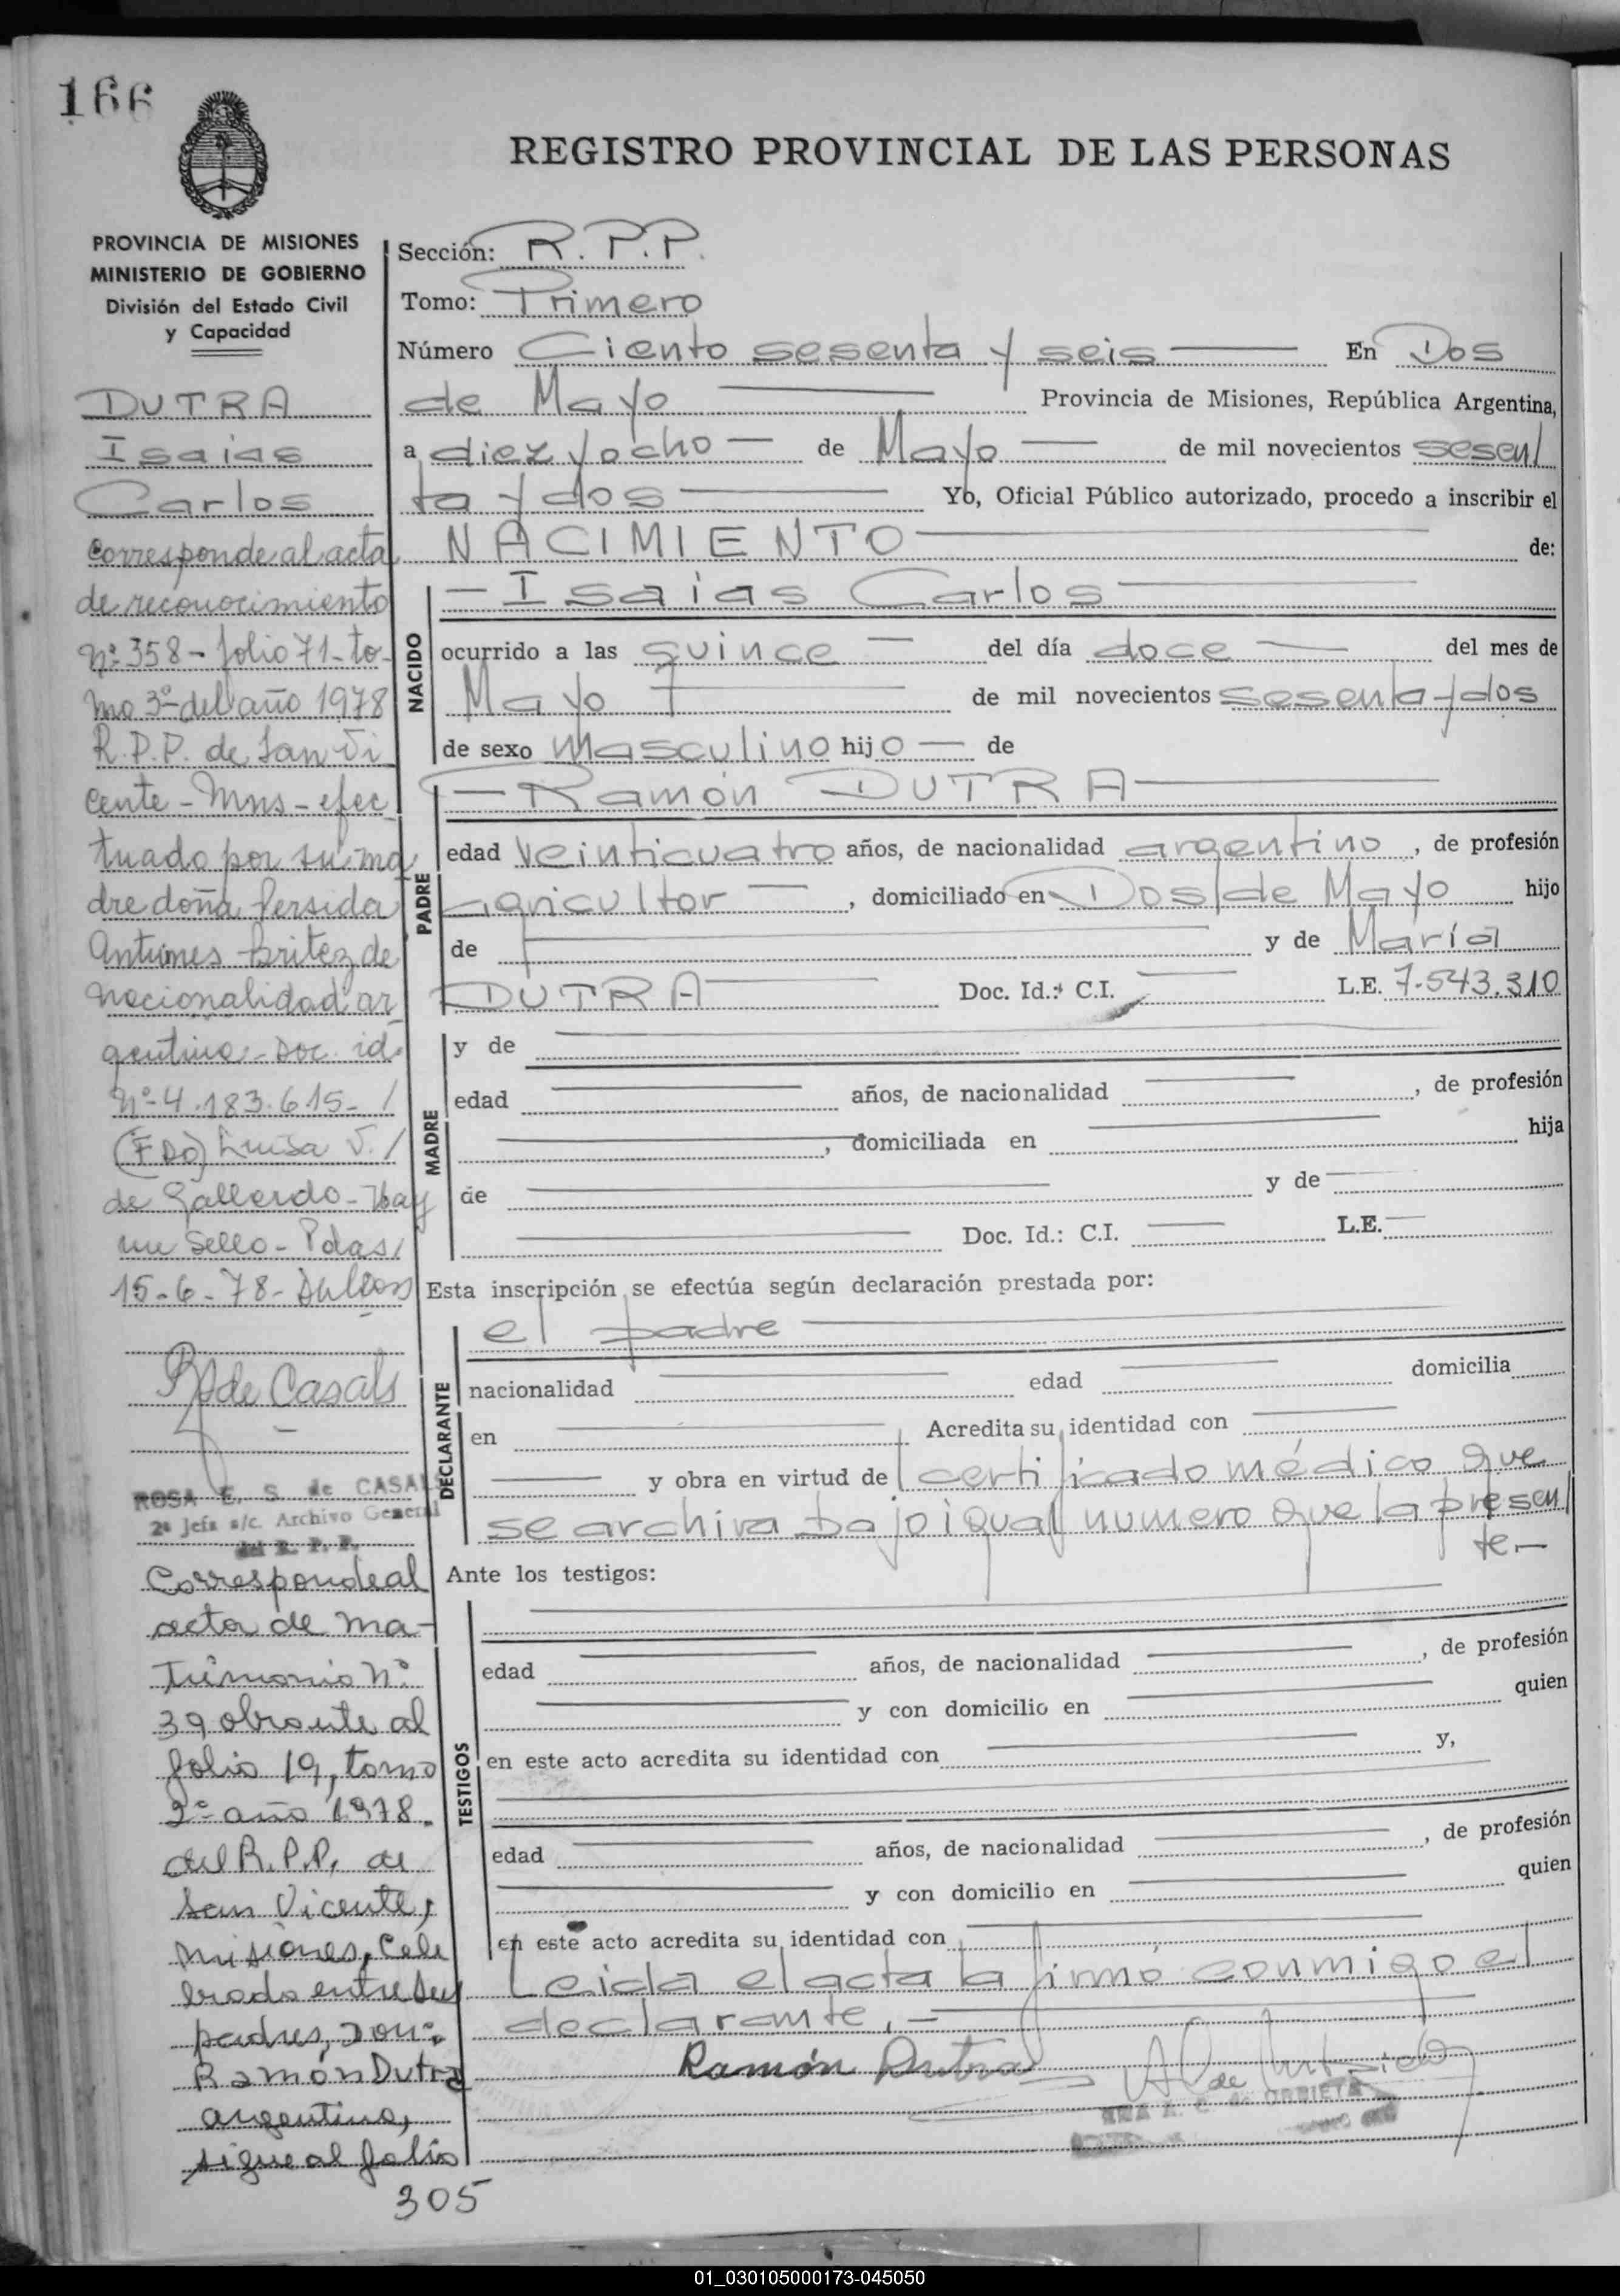 166
REGISTRO PROVINCIAL DE LAS PERSONAS
PROVINCIA DE MISIONES
MINISTERIO DE GOBIERNO
División del Estado Civil
y Capacidad
DUTRA
Isaias
Carlos
Corresponde al acta
de reconocimiento
Nº 358 - folio 71 - to-
mo 3º del año 1978
R.P.P. de San Vi
cente - Mns - efec
tuado por su ma
dre doña Persida
Antunes Britez de
nacionalidad ar
gentina - Doc. id.
Nº 4.183.615 - /
(FDO) Luisa V. /
de Gallardo - Hay
un Sello - Pdas/
15-6-78 -
R S de Casals
ROSA E. S. de CASALS
2ª Jefa a/c. Archivo General
del R. P. P.
Corresponde al
acta de ma-
trimonio Nº
39 obrante al
folio 19, tomo
2º año 1978.
del R.P.P. de
San Vicente,
Misiones, Cele
brado entre sus
padres, Don:
Ramón Dutra
argentino,
sigue al folio
305
Sección: R.P.P.
Tomo: Primero
Número Ciento sesenta y seis En Dos
de Mayo Provincia de Misiones, República Argentina,
a diez y ocho — de Mayo — de mil novecientos sesen/
ta y dos Yo, Oficial Público autorizado, procedo a inscribir el
NACIMIENTO de:
NACIDO
— Isaias Carlos
ocurrido a las quince — del día doce — del mes de
Mayo de mil novecientos sesenta y dos
de sexo masculino hijo — de
PADRE
— Ramón DUTRA
edad veinticuatro años, de nacionalidad argentino, de profesión
agricultor —, domiciliado en Dos de Mayo hijo
de y de María
DUTRA Doc. Id.: C.I. L.E. 7.543.310
MADRE
y de
edad años, de nacionalidad , de profesión
, domiciliada en hija
de y de
Doc. Id.: C.I. L.E.
Esta inscripción se efectúa según declaración prestada por:
DECLARANTE
el padre
nacionalidad edad domicilia
en Acredita su identidad con
y obra en virtud de certificado médico que
se archiva bajo igual numero que la presen/
te.-
Ante los testigos:
TESTIGOS
edad años, de nacionalidad , de profesión
y con domicilio en quien
en este acto acredita su identidad con y,
edad años, de nacionalidad , de profesión
y con domicilio en quien
en este acto acredita su identidad con
Leida el acta la firmó conmigo el
declarante.-
Ramón Dutra
01_030105000173-045050